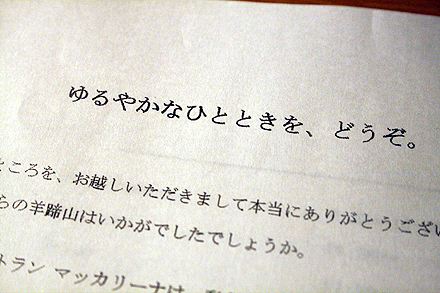 ゆるやかなひとときを、どうぞ。
ところを、お越しいただきまして本当にありがとうござい
らの羊蹄山はいかがでしたでしょうか。
トラン マッカリーナは、